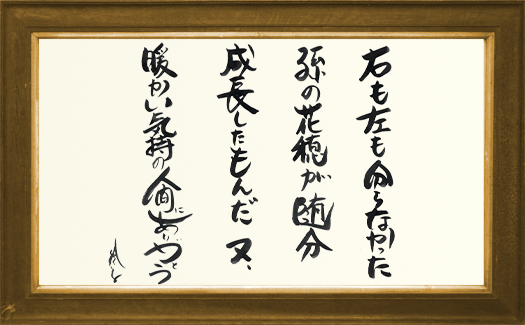 右も左も分らなかった
孫の花穂が随分
成長したもんだ 又、
暖かい気持の人間にありがとう